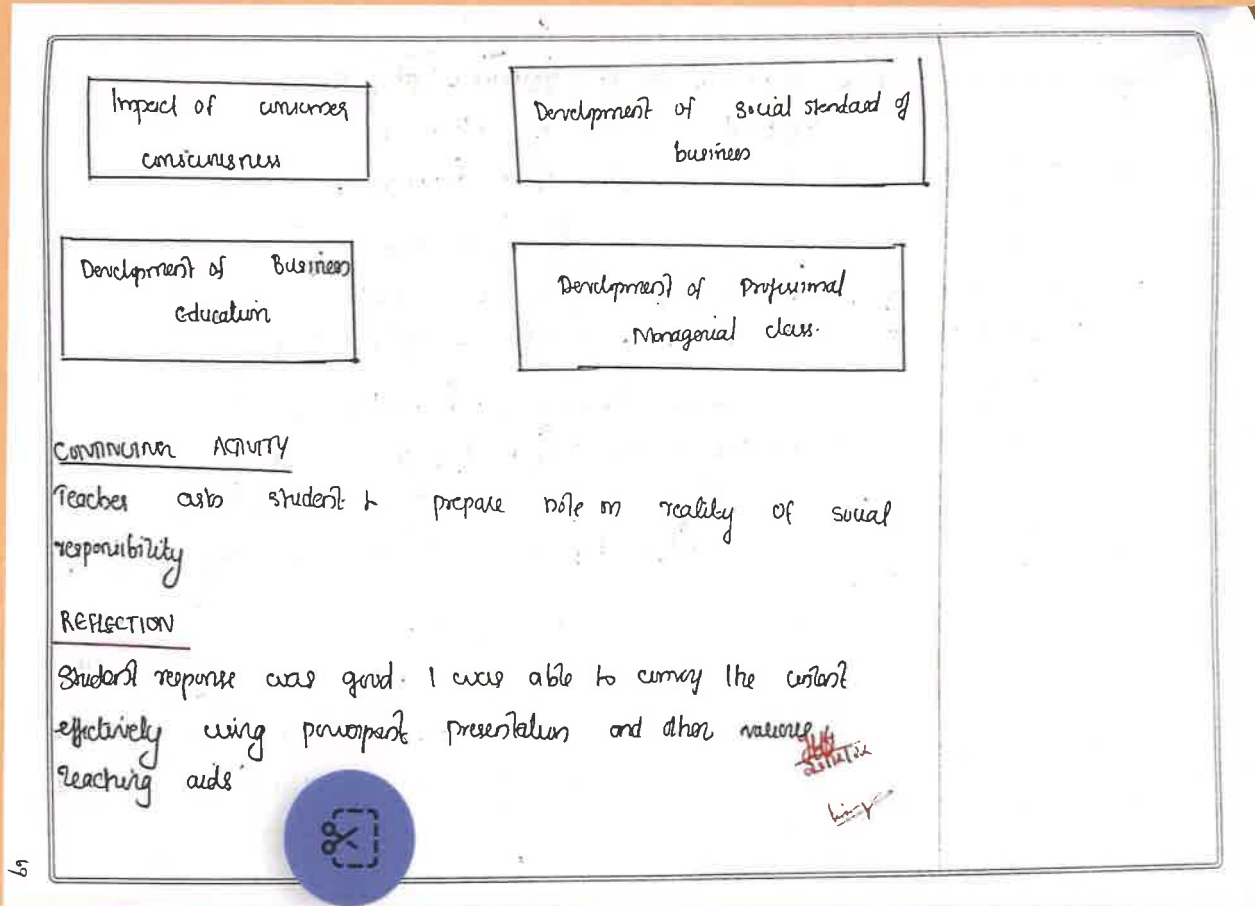 Impact of consumer
consciousness
Development of social standard of
business
Development of Business
education
Development of Professional
Managerial class.
CONTINUING ACTIVITY
Teacher asks student to prepare note on reality of social
responsibility
REFLECTION
Student response was good. I was able to convey the content
effectively using powerpoint presentation and other various
teaching aids
69